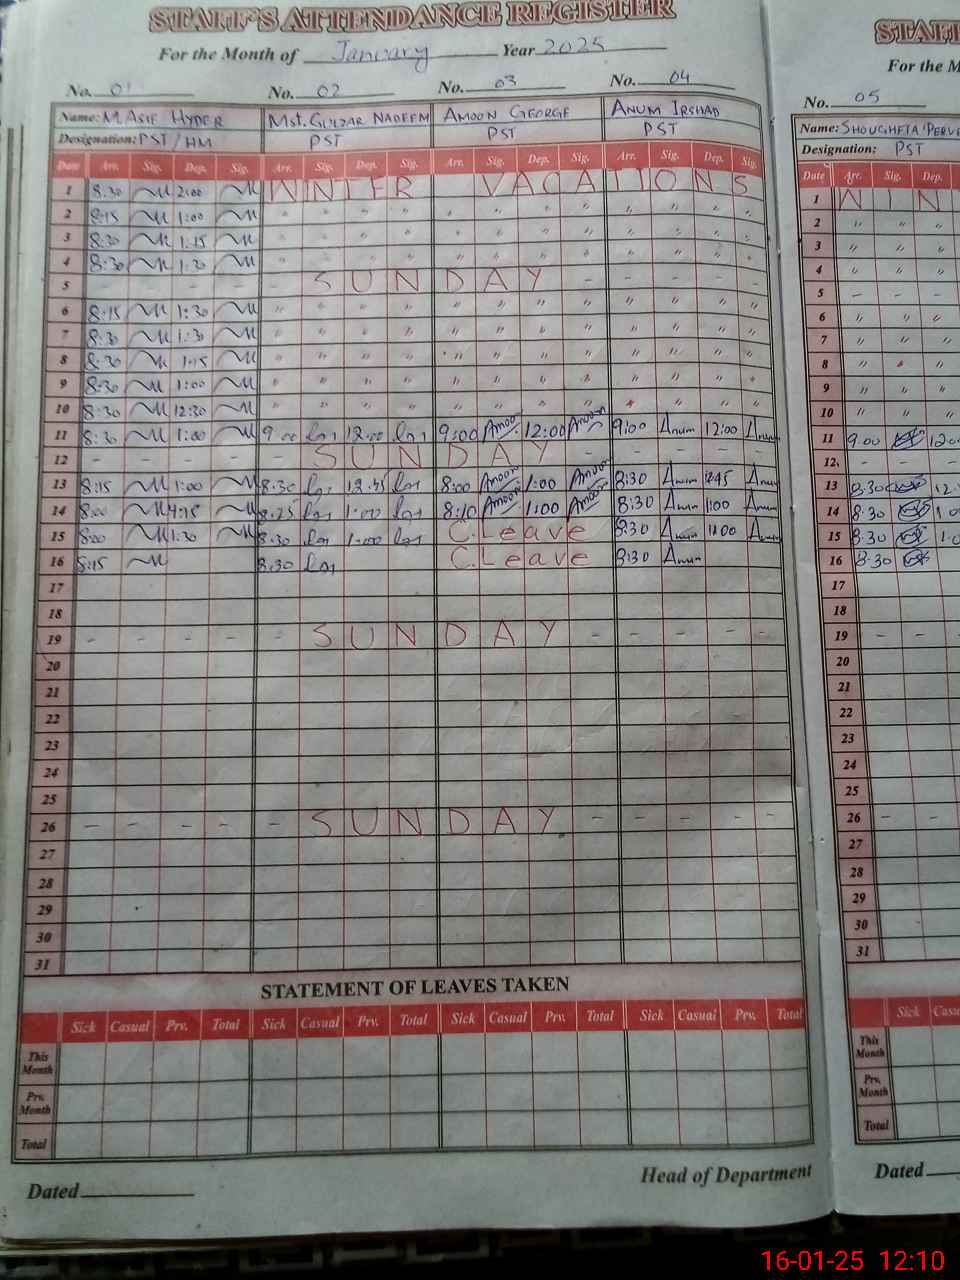 STAFF'S ATTENDANCE REGISTER
For the Month of January Year 2025
No. 01 No. 02 No. 03 No. 04
Name: M.ASIF HYDER Mst. GULZAR NADEEM AMOON GEORGE ANUM IRSHAD
Designation: PST/HM PST PST PST
Date Arr. Sig. Dep. Sig. Arr. Sig. Dep. Sig. Arr. Sig. Dep. Sig. Arr. Sig. Dep. Sig.
1 8.30 2:00 WINTER VACATIONS
2 8:15 1:00 " " " " " " " " " " " "
3 8:30 1:15 " " " " " " " " " " " "
4 8:30 1:30 " " " " " " " " " " " "
5 - - - - - SUNDAY - - - -
6 8:15 1:30 " " " " " " " " " " " "
7 8:30 1:30 " " " " " " " " " " " "
8 8:30 1:15 " " " " " " " " " " " "
9 8:30 1:00 " " " " " " " " " " " "
10 8:30 12:30 " " " " " " " " " " " "
11 8:30 1:00 9.00 12:00 9:00 Amoon 12:00 Amoon 9:00 Anum 12:00 Anum
12 - - - - - SUNDAY - - - -
13 8:15 1:00 8:30 12:45 8:00 Amoon 1:00 Amoon 8:30 Anum Anum
14 8:00 8:25 1:00 8:10 Amoon 1:00 Amoon 8:30 Anum 1:00 Anum
15 8:00 1:30 8:30 1:00 C.Leave 8:30 Anum 1:00 Anum
16 8:15 8:30 C.Leave 8:30 Anum
17
18
19 - - - - - SUNDAY - - - -
20
21
22
23
24
25
26 - - - - - SUNDAY - - - -
27
28
29
30
31
STATEMENT OF LEAVES TAKEN
Sick Casual Prv. Total Sick Casual Prv. Total Sick Casual Prv. Total Sick Casual Prv. Total
This Month
Prv. Month
Total
Dated Head of Department
STAFF
For the M
No. 05
Name: SHOUGHFTA PERVE
Designation: PST
Date Arr. Sig. Dep.
1 W I N
2 " " "
3 " " "
4 " " "
5 - - -
6 " " "
7 " " "
8 " " "
9 " " "
10 " " "
11 9.00 12:0
12 - - -
13 8.30 12.
14 8.30 1.0
15 8.30 1.0
16 8.30
17
18
19 - - -
20
21
22
23
24
25
26 - - -
27
28
29
30
31
Sick Casu
This Month
Prv. Month
Total
Dated
16-01-25 12:10